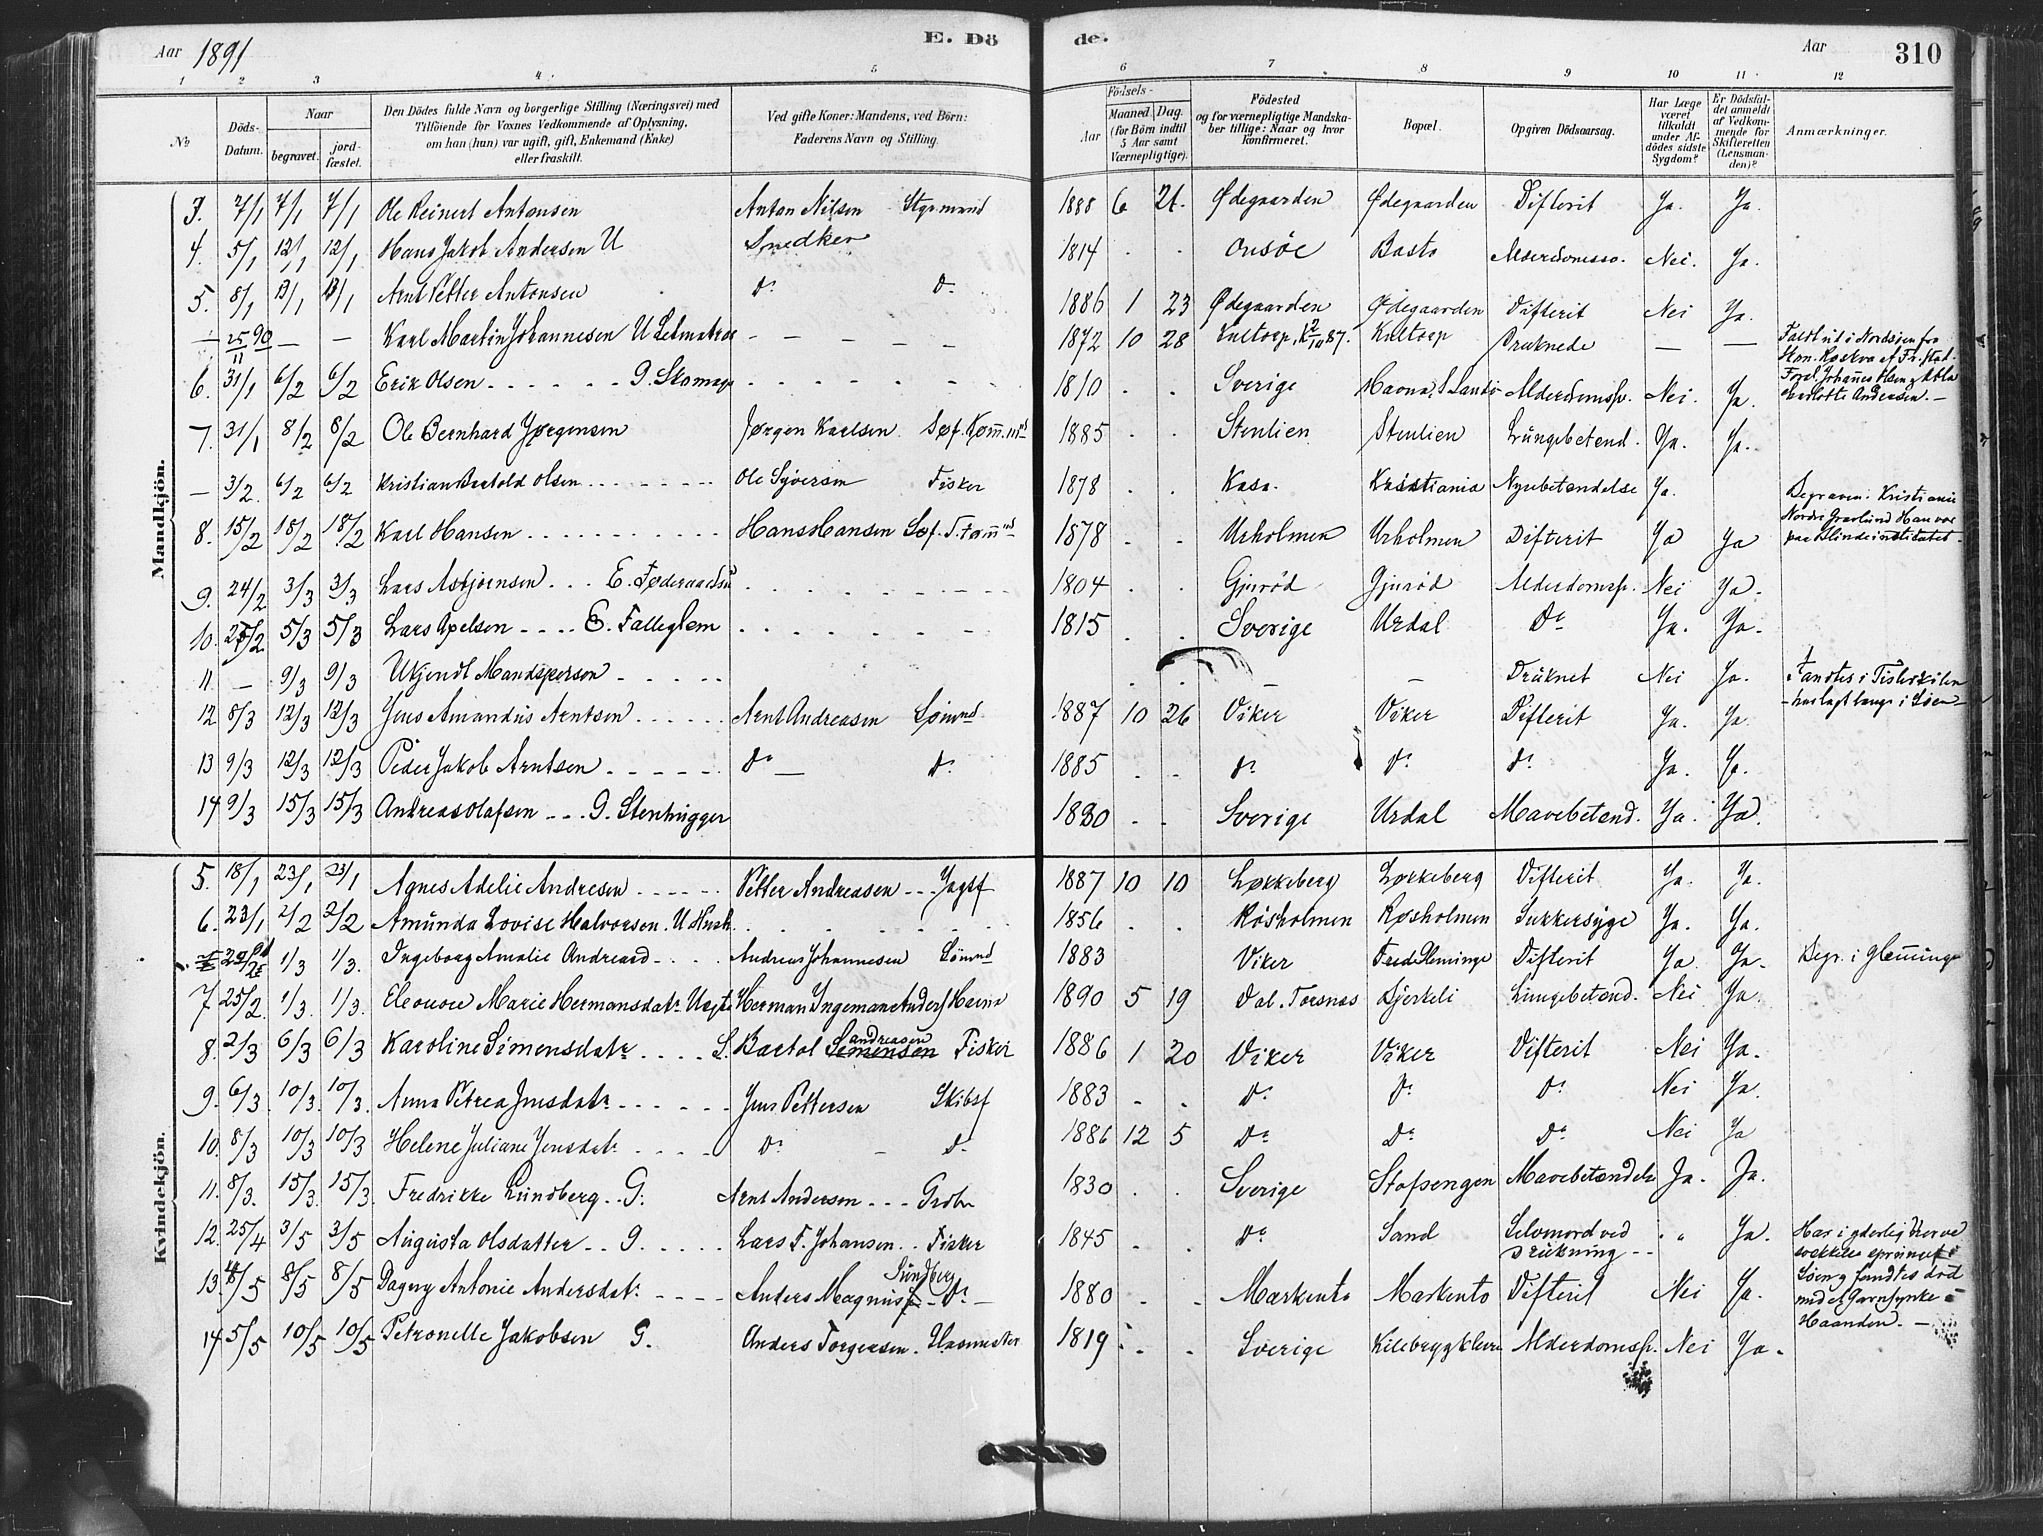 Aar 1891
E. Dö
de.
Aar
310
1 2 3 4 5 6 7 8 9 10 11 12
№
Döds-
Datum.
Naar
begravet.
jord-
fæstet.
Den Dödes fulde Navn og borgerlige Stilling (Næringsvei) med
Tilföiende for Voxnes Vedkommende af Oplysning,
om han (hun) var ugift, gift, Enkemand (Enke)
eller fraskilt.
Ved gifte Koner: Mandens, ved Börn:
Faderens Navn og Stilling.
Födsels-
Aar
Maaned. Dag.
(for Börn indtil
5 Aar samt
Værnepligtige).
Födested
og for værnepligtige Mandska-
ber tillige: Naar og hvor
konfirmeret.
Bopæl.
Opgiven Dödsaarsag.
Har Læge
været
tilkaldt
under Af-
dödes sidste
Sygdom?
Er Dödsfal-
det anmeldt
af Vedkom-
mende for
Skifteretten
(Lensman-
den)?
Anmærkninger.
Mandkjön.
3. 7/1 7/1 7/1 Ole Reinert Antonsen Anton Nilsen Styrmand 1888 6 21. Ødegaarden Ødegaarden Difterit Ja. Ja.
4. 5/1 12/1 12/1 Hans Jakob Andersen U Snedker 1814 . . Onsöe Basto Nei. Ja.
5. 8/1 13/1 13/1 Arnt Petter Antonsen Do Do 1886 1 23 Ødegaarden Ødegaarden Difterit Nei Ja.
— 25/11 90 — — Karl Martin Johannesen U Letmatros — — — 1872 10 28 Kultorp, K 2/10 87. Kultorp Druknede — — Faldt ud i Nordsjøen fra
6. 31/1 6/2 6/2 Erik Olsen - - - G. Skomag 1810 . . Sverige Alderdomssv. Nei. Ja.
Foræl. Johannes Olsen &
Charlotte Andersen. —
7. 31/1 8/2 8/2 Ole Bernhard Jørgensen Jørgen Karlsen 1885 . . Stenlien Stenlien Lungebetend. Ja. Ja.
— 3/2 6/2 6/2 Kristian Bertold Olsen - - - Ole Syversen Fisker 1878 . . Kasa. Kristiania Nyrebetendelse Ja. Begraven i Kristiania
Nordre Gravlund Han var
paa Blindeinstitutet.
8. 15/2 18/2 18/2 Karl Hansen - - - Hans Hansen 1878 . . Urholmen Urholmen Difterit Ja Ja
9. 24/2 3/3 3/3 Lars Asbjørnsen - - - E. Føderaadsm 1804 . . Gjurød Gjurød Alderdomssv. Nei Ja.
10. 5/3 5/3 Lars Axelsen - - - E. Fattiglem 1815 . . Sverige Urdal Do Ja. Ja.
11. — 9/3 9/3 Ukjendt Mandsperson - - - . . — — Druknet Nei Ja. Fandtes i Tislerkilen
har lagt længe i Søen
12 8/3 12/3 12/3 Jens Amandus Arntsen - - - Arnt Andreasen Sømnd 1887 10 26 Viker Viker Difterit Ja. Ja.
13 9/3 12/3 12/3 Peder Jakob Arntsen - - - Do — Do 1885 . . Do Do Do Ja. Ja.
14 9/3 15/3 15/3 Andreas Olafsen - - - G. Stenhugger 1830 - - Sverige Urdal Mavebetend. Ja. Ja.
Kvindekjön.
5. 18/1 23/1 23/1 Agnes Adelie Andresen - - - Petter Andreasen - - Jagtf 1887 10 10 Løkkeberg Løkkeberg Difterit Ja. Ja.
6. 23/1 2/2 2/2 Amunda Lovise Halvorsen. U Hush. 1856 . . Røsholmen Røsholmen Sukkersyge Ja. Ja.
1/3 1/3. Ingeborg Amalie Andreasd - - - Andreas Johannesen Sømnd 1883 Viker Difterit Ja Ja. Begr. i Glemminge
7. 25/2 1/3. 1/3. Eleonore Marie Hermansdatr Uægte Herman Ingeman Anders Havna 1890 5 19 Dal. Torsnæs Bjerkeli Lungebetend. Nei Ja.
8. 2/3 6/3 6/3 Karoline Simensdatr - - - S. Bartol Simensen Andreasen Fisker 1886 1 20 Viker Viker Difterit Nei Ja.
9. 6/3 10/3 10/3. Anna Petrea Jensdatr - - - Jens Pettersen Skibsf 1883 - . Do Do Do Nei Ja.
10. 8/3 10/3 10/3 Helene Juliane Jensdatr - - - Do — Do 1886 12 5 Do Do Do Nei Ja
11. 8/3. 15/3. 15/3. Fredrikke Lundberg. . G. Arnt Andersen - - - Grobr 1830 . . Sverige Stofsengen Mavebetændels Ja. Ja.
12. 25/4 3/5 3/5 Augusta Olsdatter - - G. - - - Lars F. Johansen. . Fisker 1845 . . Do Sand Selvmord ved
Drukning - - . " Ja. Har i yderlig Nerve
svækkelse sprunget i
Søen og fandtes død
med et Garnsynke i
Haanden. —
13. 4/5 8/5 8/5 Dagny Antonie Andersdatr - - - Anders Magnus Sundberg - Do — 1880 . . Markento Markento Difterit Nei Ja.
14 5/5 10/5 10/5 Petronelle Jakobsen G. Anders Torgersen. Havnester 1819 . . Sverige Alderdomssv. Nei Ja.